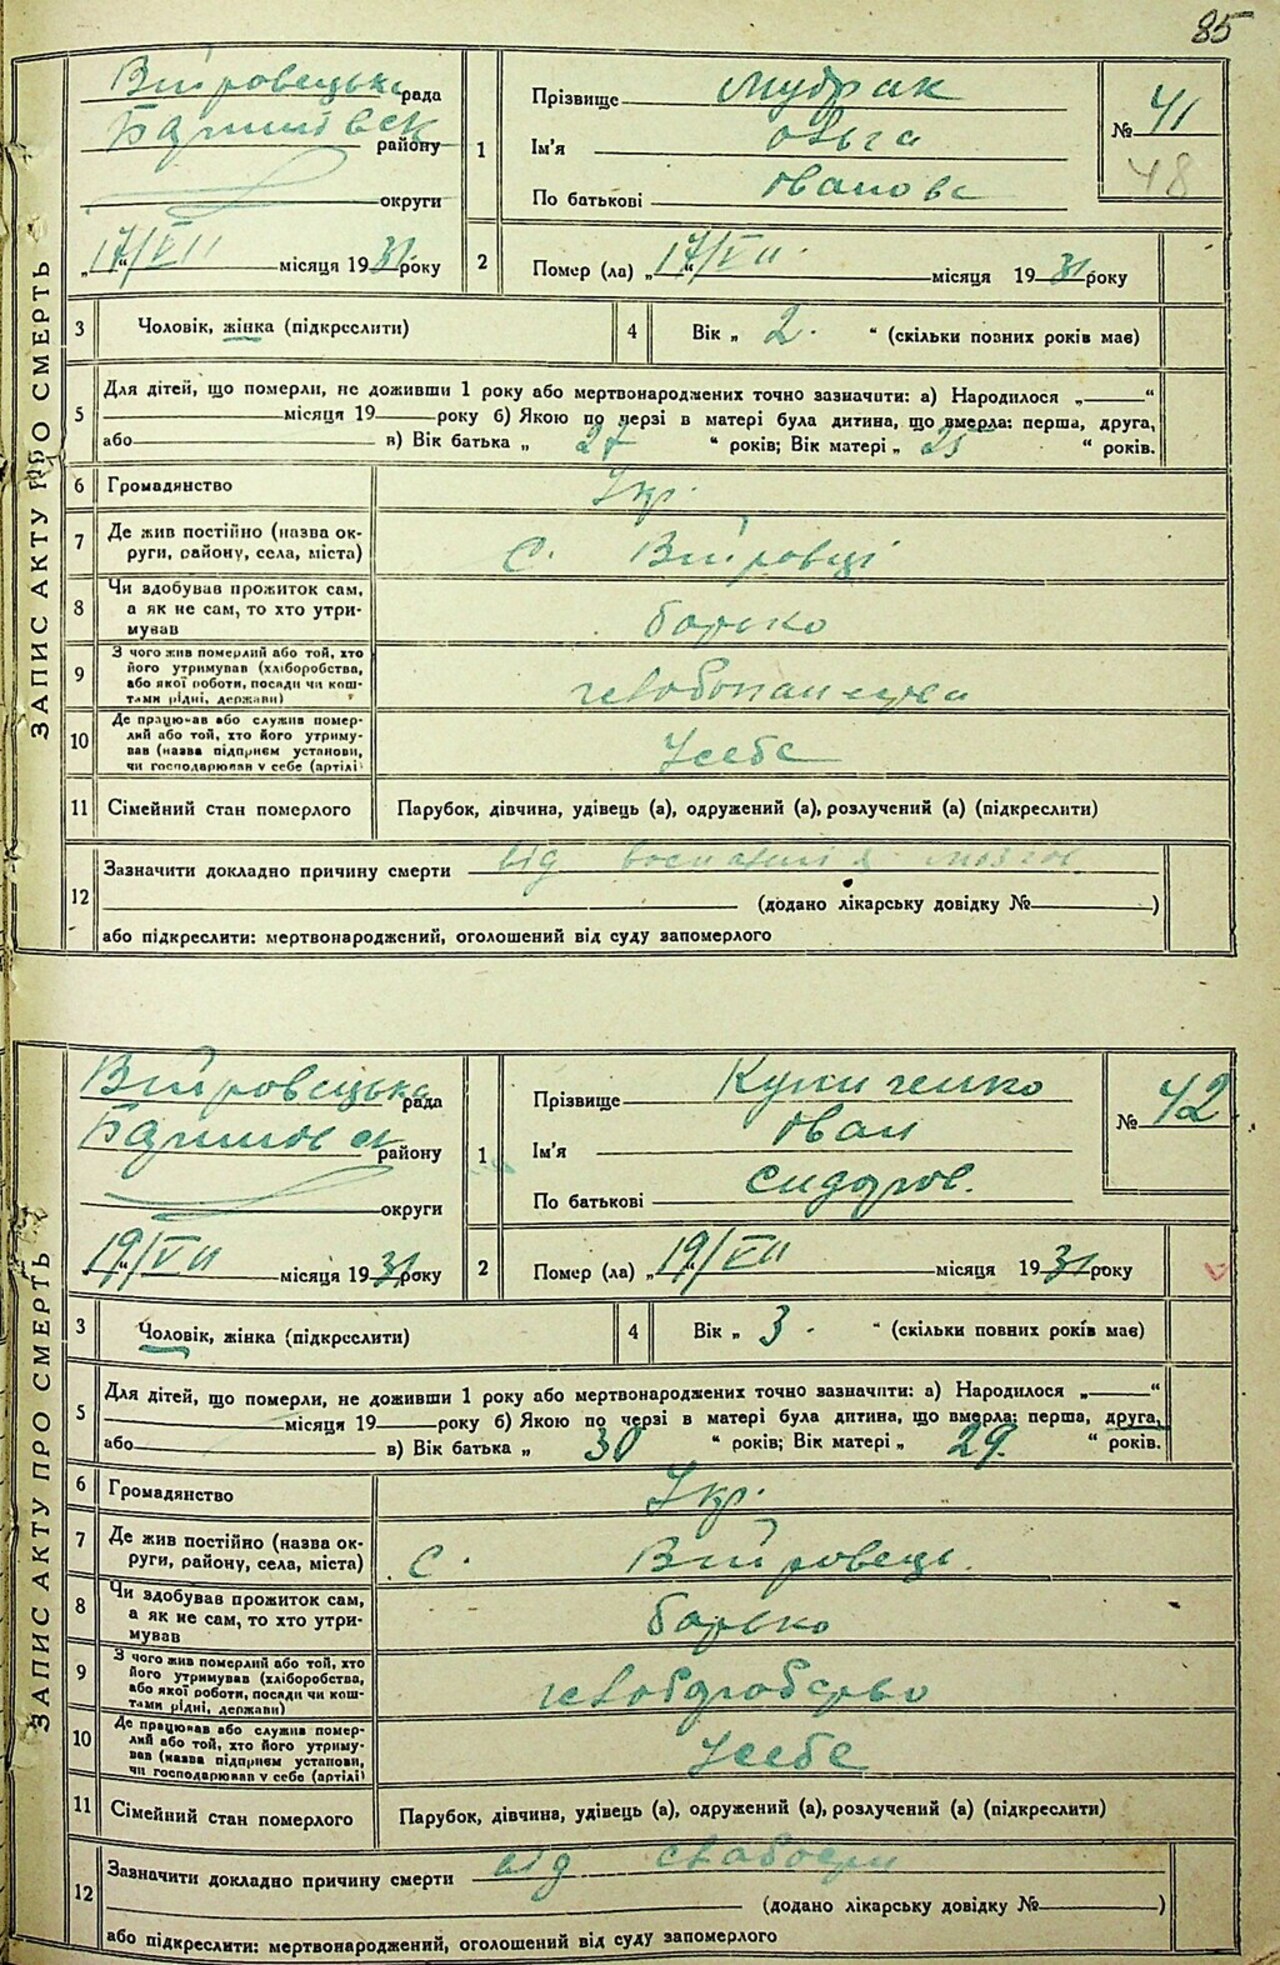 85
ЗАПИС АКТУ ПРО СМЕРТЬ
Війтовецька рада
району
округи
„17“/VII місяця 1931 року
1
Прізвище Мудрак
Ім'я Ольга
По батькові Іванова
№ 41
48
2 Помер (ла) „17“/VII місяця 1931 року
3 Чоловік, жінка (підкреслити)
4 Вік „ 2. “ (скільки повних років мав)
5 Для дітей, що померли, не доживши 1 року або мертвонароджених точно зазначити: а) Народилося „ “
місяця 19 року б) Якою по черзі в матері була дитина, що вмерла: перша, друга,
або в) Вік батька „ 27 “ років; Вік матері „ 25 “ років.
6 Громадянство Укр.
7 Де жив постійно (назва ок-
руги, району, села, міста) с. Війтовці
8 Чи здобував прожиток сам,
а як не сам, то хто утри-
мував батько
9 З чого жив померлий або той, хто
його утримував (хліборобства,
або якої роботи, посади чи кош-
тами рідні, держави)
10 Де працював або служив помер-
лий або той, хто його утриму-
вав (назва підприєм установи,
чи господарював у себе (артілі) У себе
11 Сімейний стан померлого Парубок, дівчина, удівець (а), одружений (а), розлучений (а) (підкреслити)
12 Зазначити докладно причину смерти від воспаления мозгов
(додано лікарську довідку № )
або підкреслити: мертвонароджений, оголошений від суду запомерлого
ЗАПИС АКТУ ПРО СМЕРТЬ
Війтовецька рада
району
округи
„19“/VII місяця 1931 року
1
Прізвище
Ім'я Іван
По батькові Сидоров.
№ 42
2 Помер (ла) „19“/VII місяця 1931 року
3 Чоловік, жінка (підкреслити)
4 Вік „ 3. “ (скільки повних років мав)
5 Для дітей, що померли, не доживши 1 року або мертвонароджених точно зазначити: а) Народилося „ “
місяця 19 року б) Якою по черзі в матері була дитина, що вмерла: перша, друга,
або в) Вік батька „ 30 “ років; Вік матері „ 29. “ років.
6 Громадянство Укр.
7 Де жив постійно (назва ок-
руги, району, села, міста) с. Війтовець
8 Чи здобував прожиток сам,
а як не сам, то хто утри-
мував батько
9 З чого жив померлий або той, хто
його утримував (хліборобства,
або якої роботи, посади чи кош-
тами рідні, держави) хліборобство
10 Де працював або служив помер-
лий або той, хто його утриму-
вав (назва підприєм установи,
чи господарював у себе (артілі) У себе
11 Сімейний стан померлого Парубок, дівчина, удівець (а), одружений (а), розлучений (а) (підкреслити)
12 Зазначити докладно причину смерти від слабости
(додано лікарську довідку № )
або підкреслити: мертвонароджений, оголошений від суду запомерлого